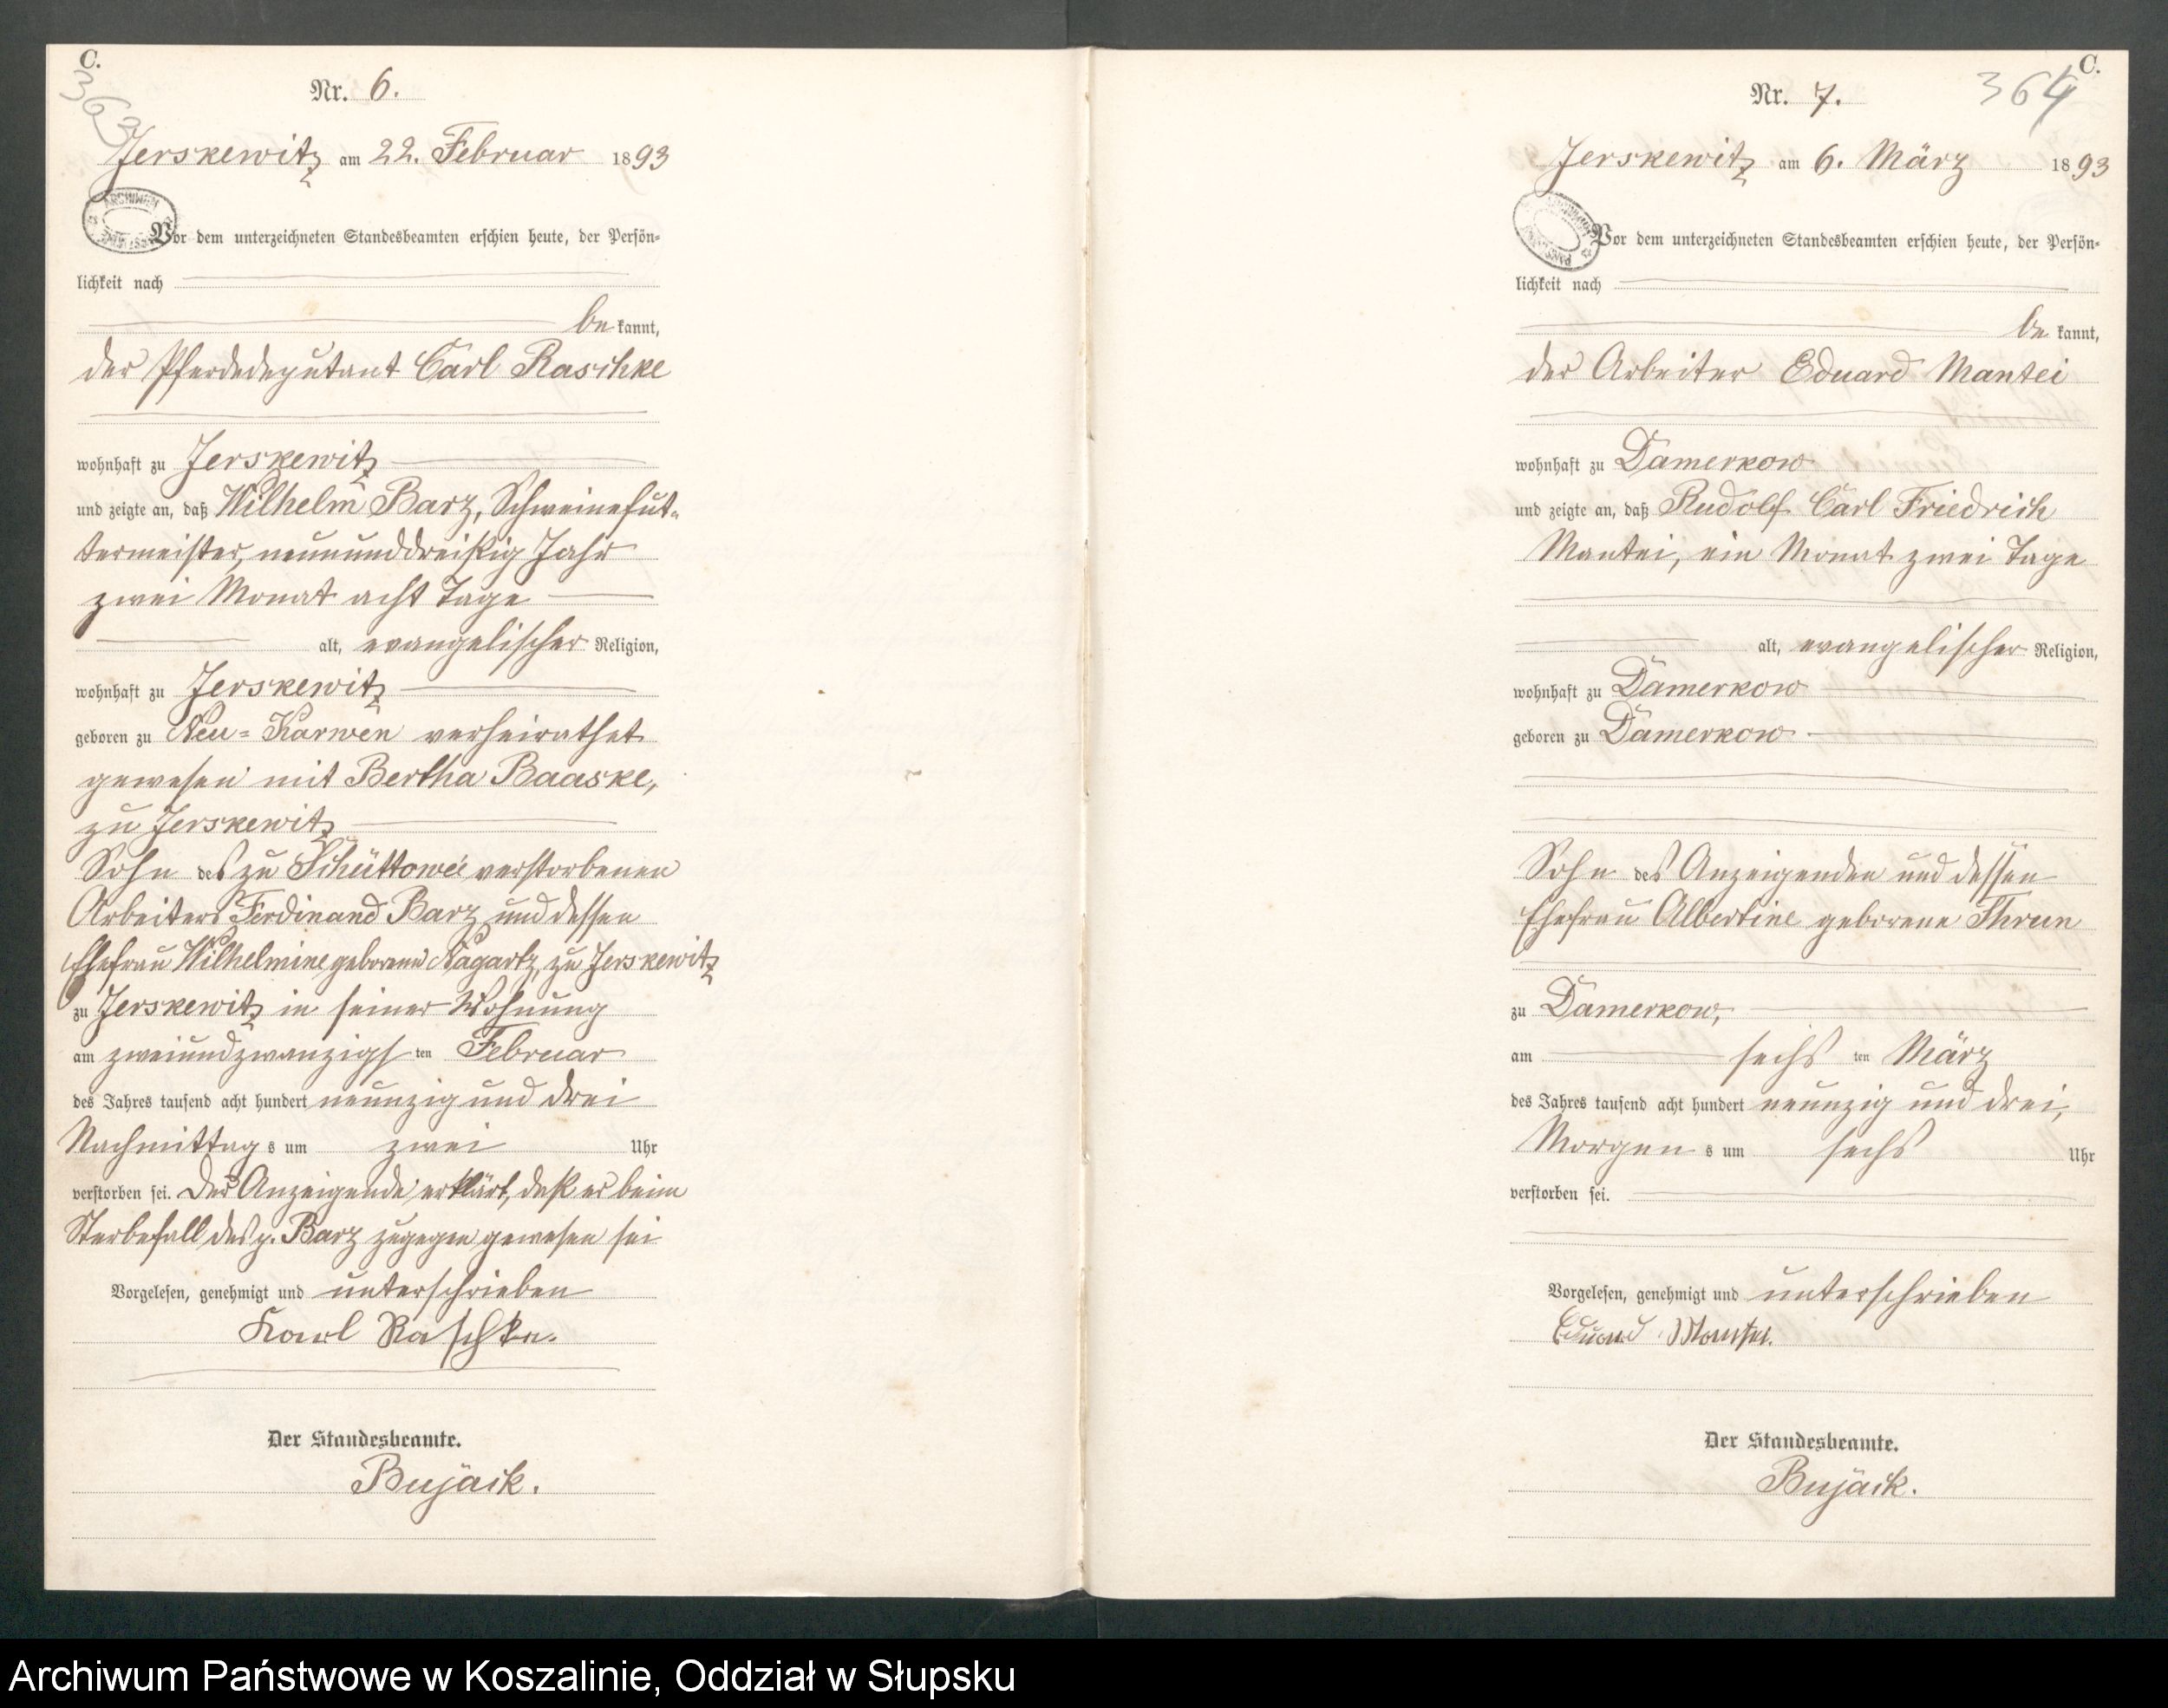 C.
363
Nr. 6.
Jerskewitz am 22. Februar 1893
Vor dem unterzeichneten Standesbeamten erschien heute, der Persön-
lichkeit nach
be kannt,
der Pferdedeputant Carl Raschke
wohnhaft zu Jerskewitz
und zeigte an, daß Wilhelm Barz, Schweinefut-
termeister, neununddreißig Jahr
zwei Monat acht Tage
alt, evangelischer Religion,
wohnhaft zu Jerskewitz
geboren zu Neu-Karwen verheirathet
gewesen mit Bertha Baaske,
zu Jerskewitz
Sohn des zu Schüttowe verstorbenen
Arbeiters Ferdinand Barz und dessen
Ehefrau Wilhelmine geborene Nagartz, zu Jerskewitz
zu Jerskewitz in seiner Wohnung
am zweiundzwanzigs ten Februar
des Jahres tausend acht hundert neunzig und drei
Nachmittag s um zwei Uhr
verstorben sei. Der Anzeigende erklärt, daß er beim
Sterbefall des p. Barz zugegen gewesen sei
Vorgelesen, genehmigt und unterschrieben
Karl Raschke.
Der Standesbeamte.
Bujack.
C.
364
Nr. 7.
Jerskewitz am 6. März 1893
Vor dem unterzeichneten Standesbeamten erschien heute, der Persön-
lichkeit nach
be kannt,
der Arbeiter Eduard Mantei
wohnhaft zu Damerkow
und zeigte an, daß Rudolf Carl Friedrich
Mantei, ein Monat zwei Tage
alt, evangelischer Religion,
wohnhaft zu Damerkow
geboren zu Damerkow
Sohn des Anzeigenden und dessen
Ehefrau Albertine geborene Thrun
zu Damerkow,
am sechs ten März
des Jahres tausend acht hundert neunzig und drei,
Morgen s um sechs Uhr
verstorben sei.
Vorgelesen, genehmigt und unterschrieben
Eduard Mantei.
Der Standesbeamte.
Bujack.
Archiwum Państwowe w Koszalinie, Oddział w Słupsku